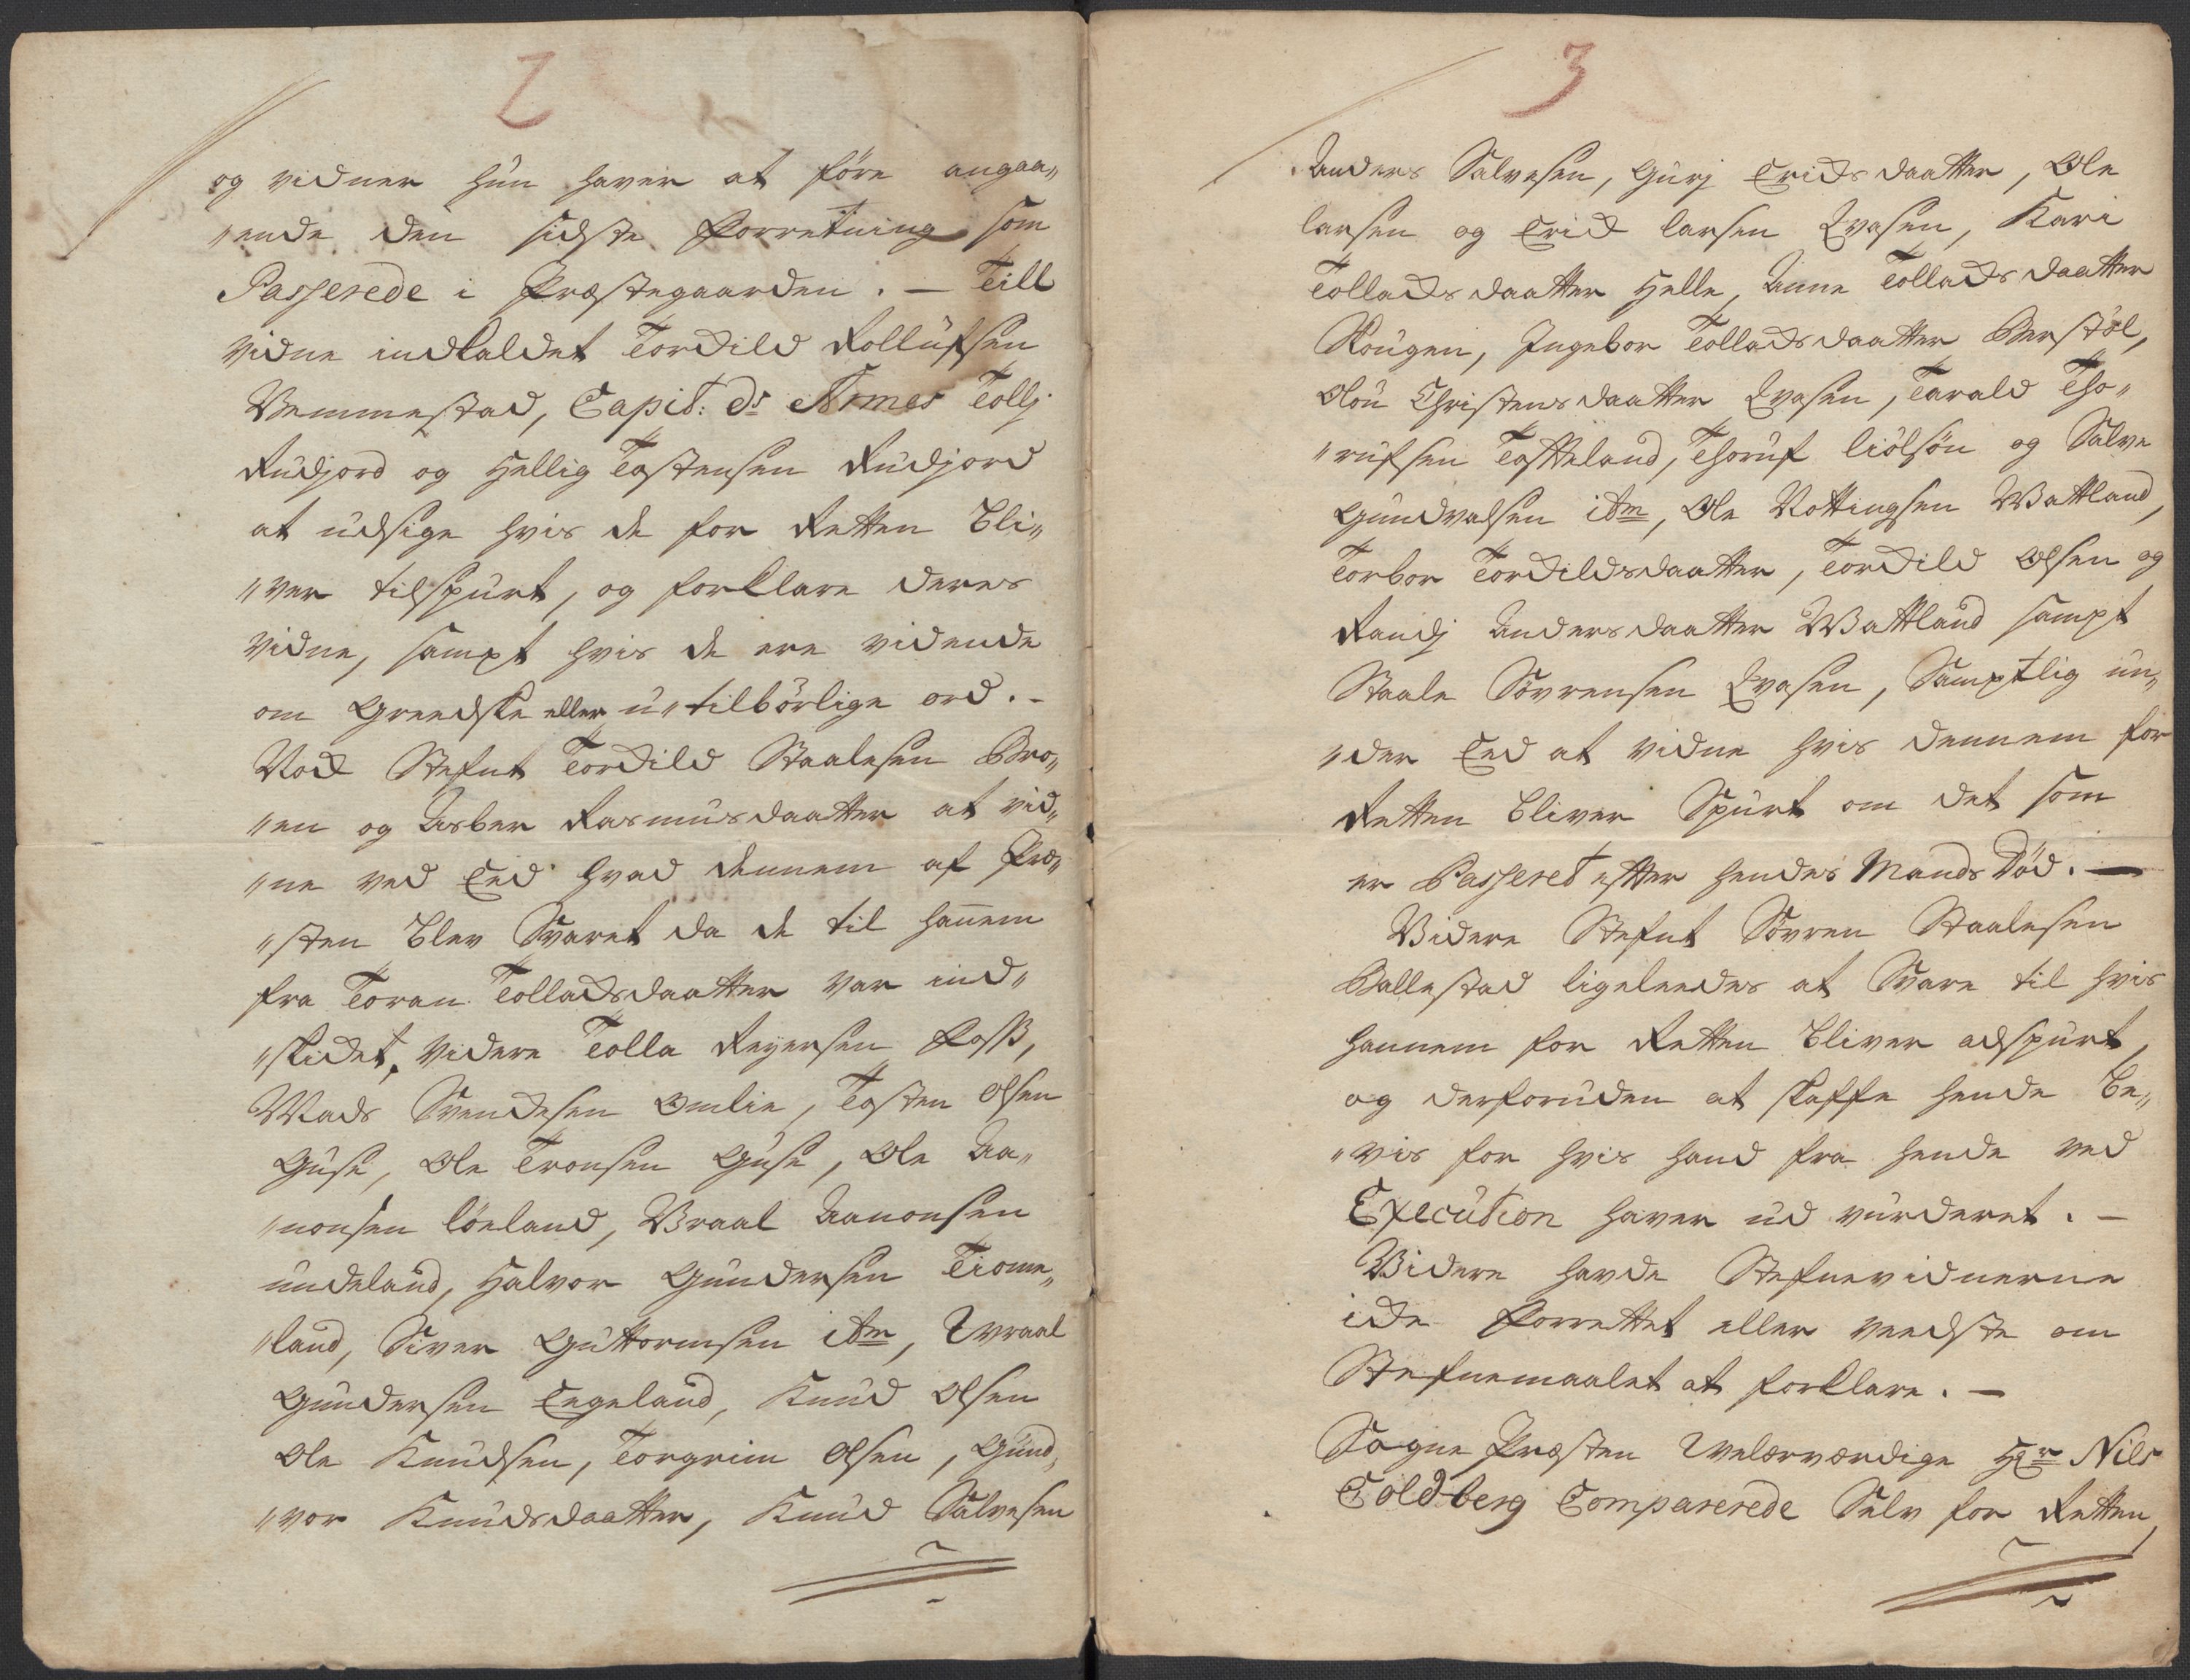 2
og vidner hun haver at före angaa„
„ende den sidste Forretning som
Passerede i Præstegaarden. — Till
vidne indkaldet Torkild Rollufsen
Vemmestad, Capit: ds Armes Tollj
Rudjord og Hellig Tostensen Rudjord
at udsige hvis de for Retten bli„
„ver tilspurt, og forklare deres
vidne, sampt hvis de ere vidende
om Greedske eller u„tilbörlige ord. -
Nok Stefnt Torkild Staalesen Bro„
„en og Asber Rasmusdaatter at vid„
„ne ved Eed hvad dennem af Præ„
„sten blev Svaret da de til ham̅em
fra Toran Tolladsdaatter var ind„
„skidet, videre Tolla Reyersen Foss,
Mads Svendsen Omlie, Tosten Olsen
Guse, Ole Tronsen Guse, Ole Aa„
„nonsen löeland, Vraal Aanonsen
undeland, Halvor Gundersen Tiome„
„land, Siver Guttormsen itm, Uvraal
Gundersen Eegeland, Knud Olsen
Ole Knudsen, Torgrim Olsen, Gund„
„vor Knudsdaatter, Knud Salvesen
3
Anders Salvesen, Gurj Eriksdaatter, Ole
larsen og Erik larsen Qvasen, Kari
Tolladsdaatter Helle, Anne Tolladsdaatter
Skougen, Ingebor Tolladsdaatter Berstöl,
Olou Christensdaatter Qvasen, Tarald Tho„
„rufsen Tostteland, Thoruf liölsön og Salve
Gundvalsen itm, Ole Nottingsen Vattland,
Torbor Torkildsdaatter, Torkild Olsen og
Randj Andersdaatter Vattland sampt
Staale Sövrensen Qvasen, Samptlig un„
„der Eed at vidne hvis dennem for
Retten bliver Spurt om det som
er Passeret efter hendes Mands Död. —
Videre Stefnt Sövren Staalesen
Ballestad ligeleedes at Svare til hvis
hannem for Retten bliver adspurt,
og derforuden at skaffe hende be„
„vis for hvis hand fra hende ved
Execution haver ud vurderet. —
Videre havde Stefnevidnerne
ike Forrettet eller veedste om
Stefnemaalet at forklare. —
Sogne Præsten Velærværdige Hr Nils
Coldberg Comparerede Selv for Retten,